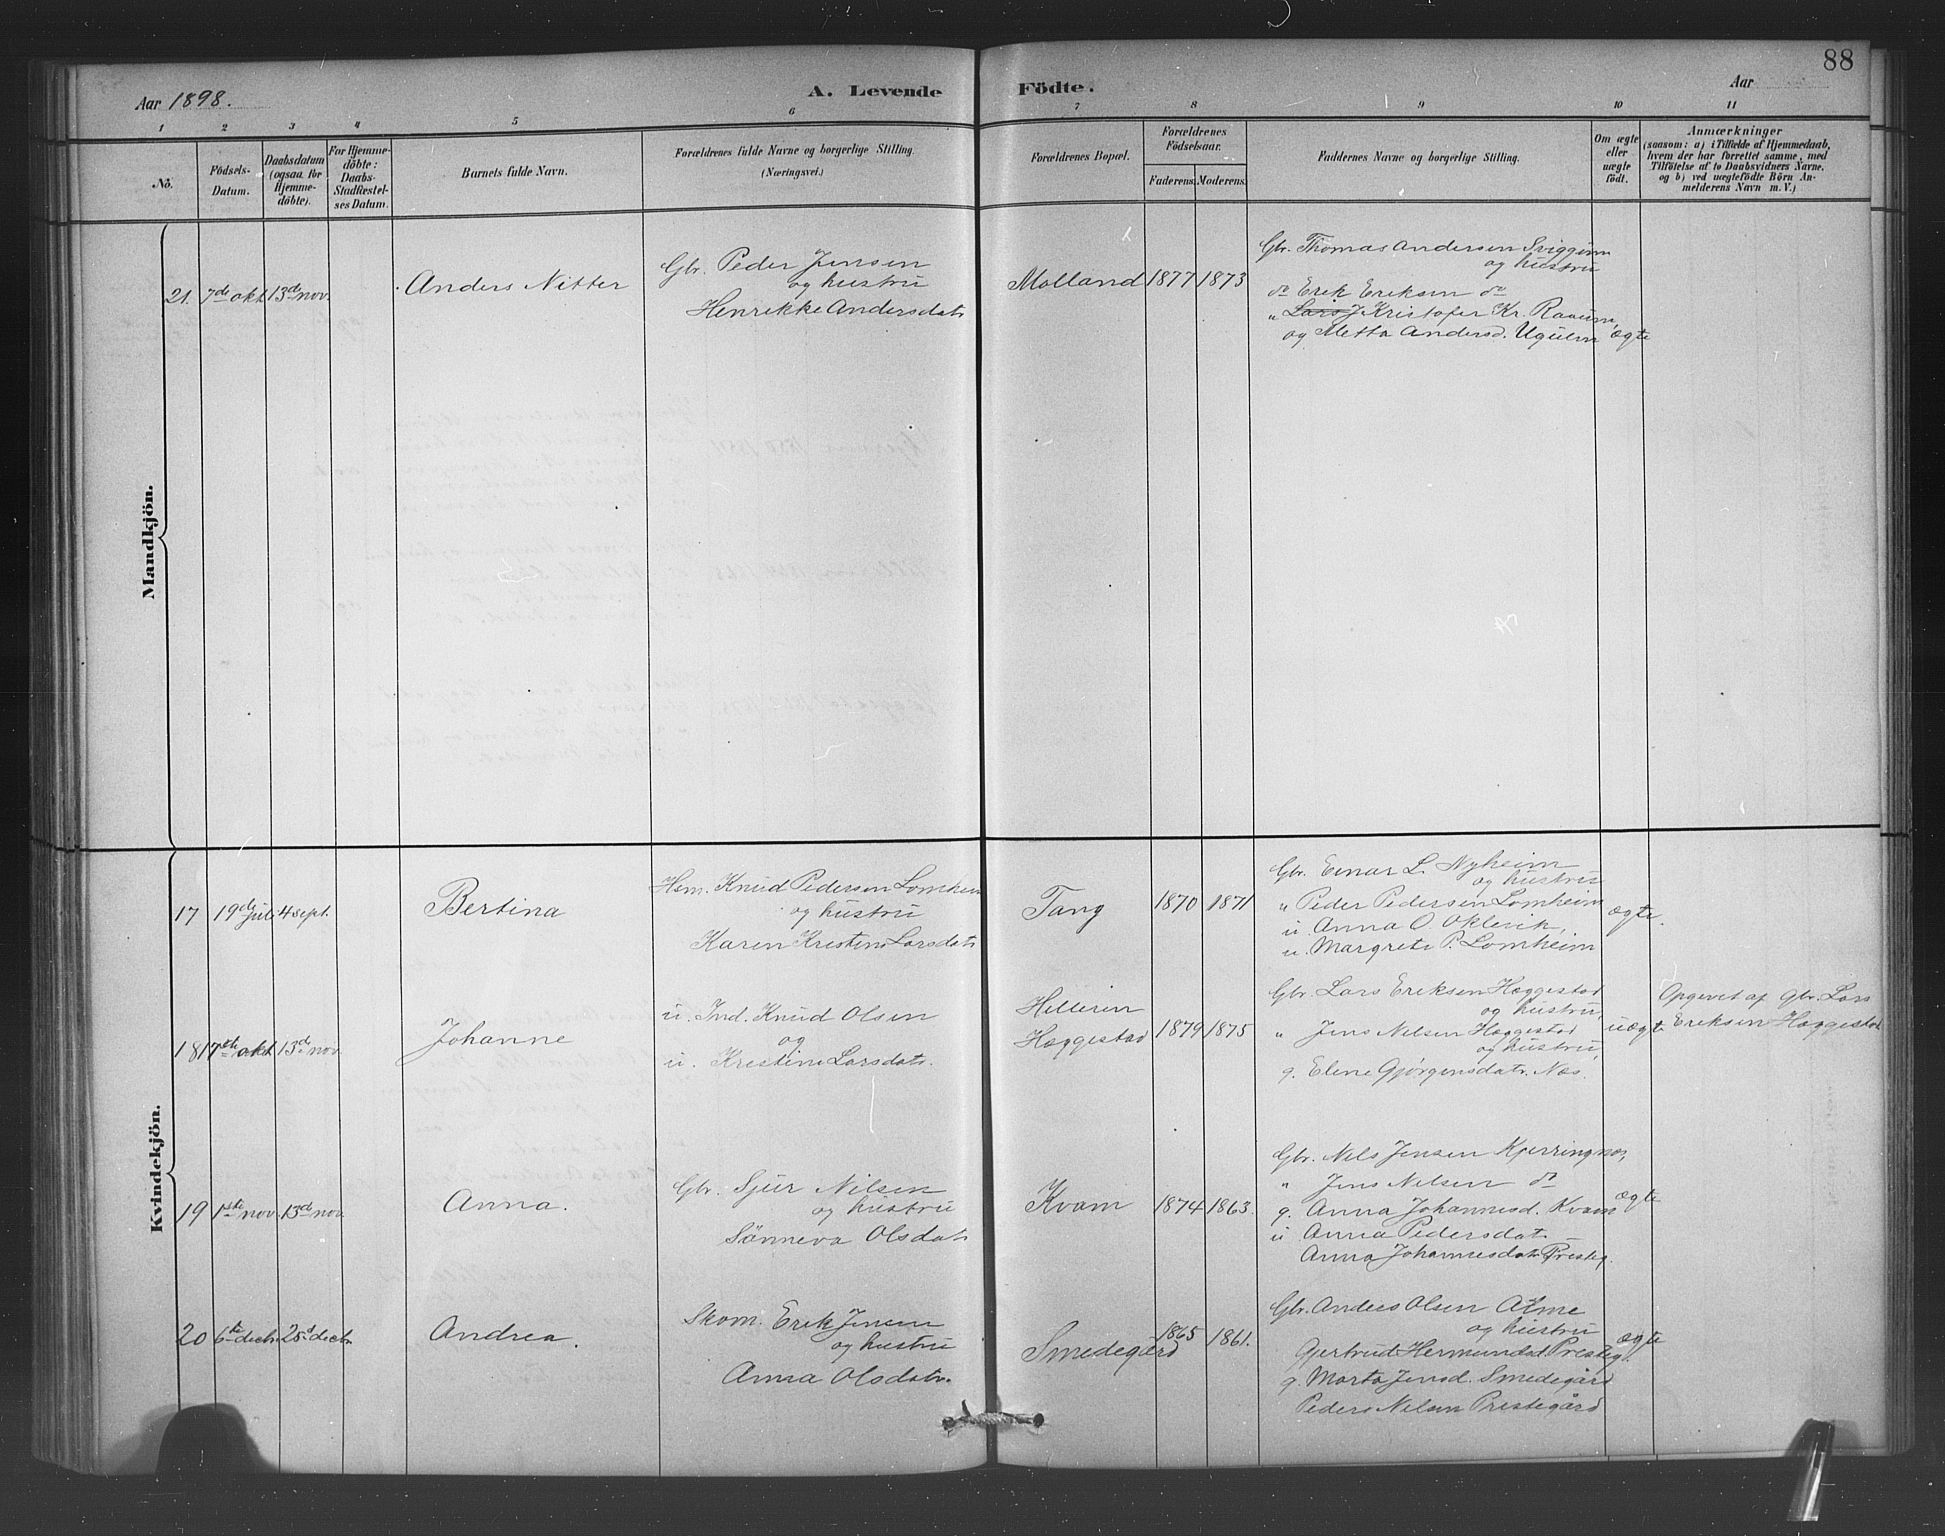 88
Aar 1898.
A. Levende Födte.
Aar
1 2 3 4 5 6 7 8 9 10 11
No.
Födsels-
Datum.
Daabsdatum
(ogsaa for
Hjemme-
döbte).
For Hjemme-
döbte:
Daabs-
Stadfæstel-
ses Datum.
Barnets fulde Navn.
Forældrenes fulde Navne og borgerlige Stilling.
(Næringsvei.)
Forældrenes Bopæl.
Forældrenes
Födselsaar.
Faderens. Moderens.
Faddernes Navne og borgerlige Stilling.
Om ægte
eller
uægte
födt.
Anmærkninger
(saasom: a) i Tilfælde af Hjemmedaab,
hvem der har forrettet samme, med
Tilföielse af to Daabsvidners Navne,
og b) ved uægtefödte Börn An-
melderens Navn m. V.)
Mandkjön.
21. 7de okt. 13de nov.
Anders Nitter
Gbr. Peder Jensen
og hustru
Henrikke Andersdatr
Molland 1877 1873
Gbr. Thomas Andersen Sviggum
og hustru
do Erik Eriksen do
" Lars J Kristofer Kr. Raaum,
og Metta Andersd. Ugulen
ægte
Kvindekjön.
17 19de juli 4 sept.
Bertina
Hsm. Knud Pedersen Lomheim
og hustru
Karen Kristine Larsdatr
Tang 1870 1871
Gbr. Einar L. Nyheim
og hustru
" Peder Pedersen Lomheim
u. Anna O. Oklevik,
u. Margrete P. Lomheim
ægte.
18 17de okt. 13de nov.
Johanne
u. Ind. Knud Olsen
og
u. Kristine Larsdatr.
Helleren
Hæggestad 1879 1875
Gbr. Lars Eriksen Hæggestad
og hustru,
" Jens Nelsen Hæggestad
og hustru,
g. Elene Gjørgensdatr. Næs.
uægte
Opgivet af Gbr. Lars
Eriksen Hæggestad
19 1ste nov. 13de nov.
Anna.
Gbr. Sjur Nilsen
og hustru
Sønneva Olsdatr
Kvam 1874 1863.
Gbr. Nels Jensen Kjerringnæs,
" Jens Nelsen do
g. Anna Johannesd. Kvam
u Anna Pedersdatr
Anna Johannesdatr Presteg.
ægte
20 6te decbr. 25d decbr.
Andrea.
Skom. Erik Jensen
og hustru
Anna Olsdatr.
Smedegård 1865 1861.
Gbr. Anders Olsen Alme
og hustru
Gjertrud Hermundsd Presteg.
g. Marta Jensd. Smedegård
Peder Nelsen Prestegård
ægte